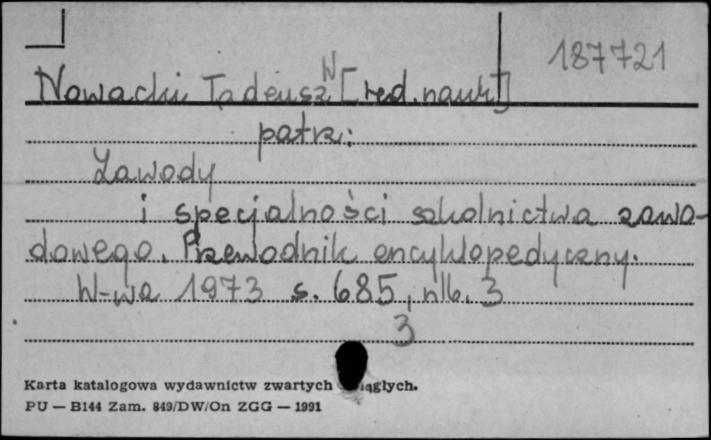 187721
Nowacki Tadeusz N [red. nauk]
patrz:
Zawody
i specjalności szkolnictwa zawo-
dowego. Przewodnik encyklopedyczny.
W-wa 1973 s. 685, nlb. 3
3
Karta katalogowa wydawnictw zwartych ągłych.
PU — B144 Zam. 849/DW/On ZGG — 1991